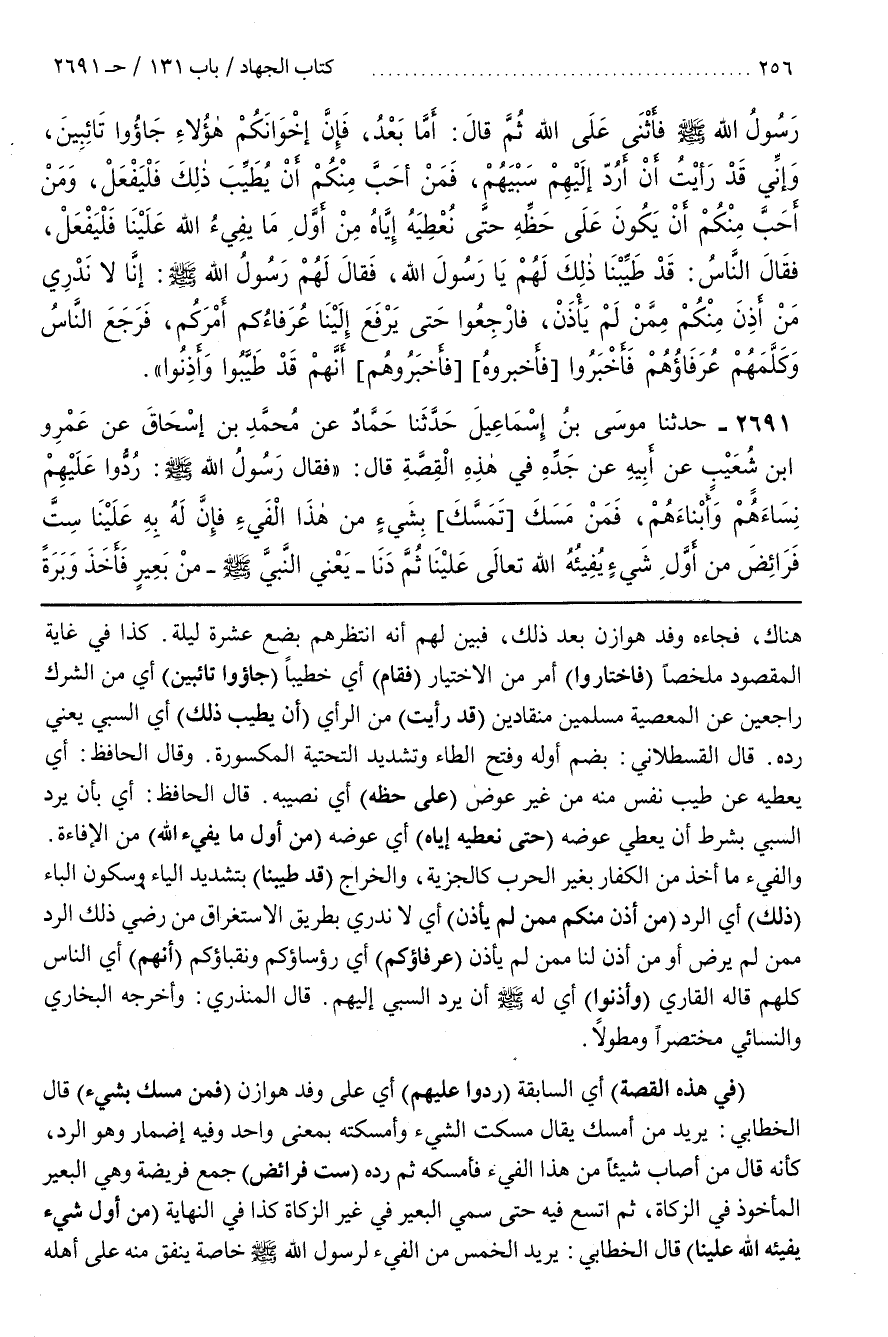 ٢٥٦ ............................................... كتاب الجهاد/ باب ١٣١ / حـ ٢٦٩١
رَسُولُ الله ﷺ فأَثْنَى عَلَى الله ثُمَّ قالَ: أمَّا بَعْدُ، فَإنَّ إخْوَانَكُمْ هٰؤُلاءِ جَاؤُوا تَائِبِينَ،
وَإنِّي قَدْ رَأيْتُ أنْ أرُدّ إلَيْهِمْ سَبْيَهُمْ، فَمَنْ أحَبَّ مِنْكُمْ أنْ يُطَيِّبَ ذٰلِكَ فَلْيَفْعَلْ، وَمَنْ
أَحَبَّ مِنْكُمْ أنْ يَكُونَ عَلَى حَظِّهِ حتَّى نُعْطِيَهُ إيَّاهُ مِنْ أوَّلِ مَا يفِيءُ الله عَلَيْنَا فَلْيَفْعَلْ،
فقَالَ النَّاسُ: قَدْ طَيَّبْنَا ذٰلِكَ لَهُمْ يَا رَسُولَ الله، فَقالَ لَهُمْ رَسُولُ الله ﷺ: إنَّا لا نَدْرِي
مَنْ أذِنَ مِنْكُمْ مِمَّنْ لَمْ يَأْذَنْ، فارْجِعُوا حَتى يَرْفَعَ إلَيْنَا عُرَفاءُكم أمْرَكُم، فَرَجَعَ النَّاسُ
وَكَلَّمَهُمْ عُرَفَاؤُهُمْ فَأَخْبَرُوا [فأَخبروهُ] [فأَخبَرُوهُم] أَنَّهمْ قَدْ طَيَّبُوا وَأَذِنُوا».
٢٦٩١ ـ حدثنا موسَى بنُ إسْمَاعِيلَ حَدَّثَنا حَمَّادٌ عن مُحمَّدِ بن إسْحَاقَ عن عَمْرِو
ابن شُعَيْبٍ عن أبِيهِ عن جَدِّهِ في هٰذِهِ الْقِصَّةِ قال: «فقال رَسُولُ الله ﷺ: رُدُّوا عَلَيْهِمْ
نِسَاءَهُمْ وَأبْناءَهُمْ، فَمَنْ مَسَكَ [تَمَسَّكَ] بِشَيءٍ من هٰذَا الْفَيءِ فإنَّ لَهُ بِهِ عَلَيْنَا سِتَّ
فَرَائِضَ من أوَّلِ شَيءٍ يُفِيئُهُ الله تعالَى عَلَيْنَا ثُمَّ دَنَا ـ يَعْني النَّبيَّ ﷺ ـ مِنْ بَعِيرٍ فَأَخَذَ وَبَرَةً
هناك، فجاءه وفد هوازن بعد ذلك، فبين لهم أنه انتظرهم بضع عشرة ليلة. كذا في غاية
المقصود ملخصاً (فاختاروا) أمر من الاختيار (فقام) أي خطيباً (جاؤوا تائبين) أي من الشرك
راجعين عن المعصية مسلمين منقادين (قد رأيت) من الرأي (أن يطيب ذلك) أي السبي يعني
رده. قال القسطلاني: بضم أوله وفتح الطاء وتشديد التحتية المكسورة. وقال الحافظ: أي
يعطيه عن طيب نفس منه من غير عوض (على حظه) أي نصيبه. قال الحافظ: أي بأن يرد
السبي بشرط أن يعطي عوضه (حتى نعطيه إياه) أي عوضه (من أول ما يفيء الله) من الإفاءة.
والفيء ما أخذ من الكفار بغير الحرب كالجزية، والخراج (قد طيبنا) بتشديد الياء وسكون الباء
(ذلك) أي الرد (من أذن منكم ممن لم يأذن) أي لا ندري بطريق الاستغراق من رضي ذلك الرد
ممن لم يرض أو من أذن لنا ممن لم يأذن (عرفاؤكم) أي رؤساؤكم ونقباؤكم (أنهم) أي الناس
كلهم قاله القاري (وأذنوا) أي له ﷺ أن يرد السبي إليهم. قال المنذري: وأخرجه البخاري
والنسائي مختصراً ومطولاً.
(في هذه القصة) أي السابقة (ردوا عليهم) أي على وفد هوازن (فمن مسك بشيء) قال
الخطابي: يريد من أمسك يقال مسكت الشيء وأمسكته بمعنى واحد وفيه إضمار وهو الرد،
كأنه قال من أصاب شيئاً من هذا الفيء فأمسكه ثم رده (ست فرائض) جمع فريضة وهي البعير
المأخوذ في الزكاة، ثم اتسع فيه حتى سمي البعير في غير الزكاة كذا في النهاية (من أول شيء
يفيئه الله علينا) قال الخطابي: يريد الخمس من الفيء لرسول الله ﷺ خاصة ينفق منه على أهله